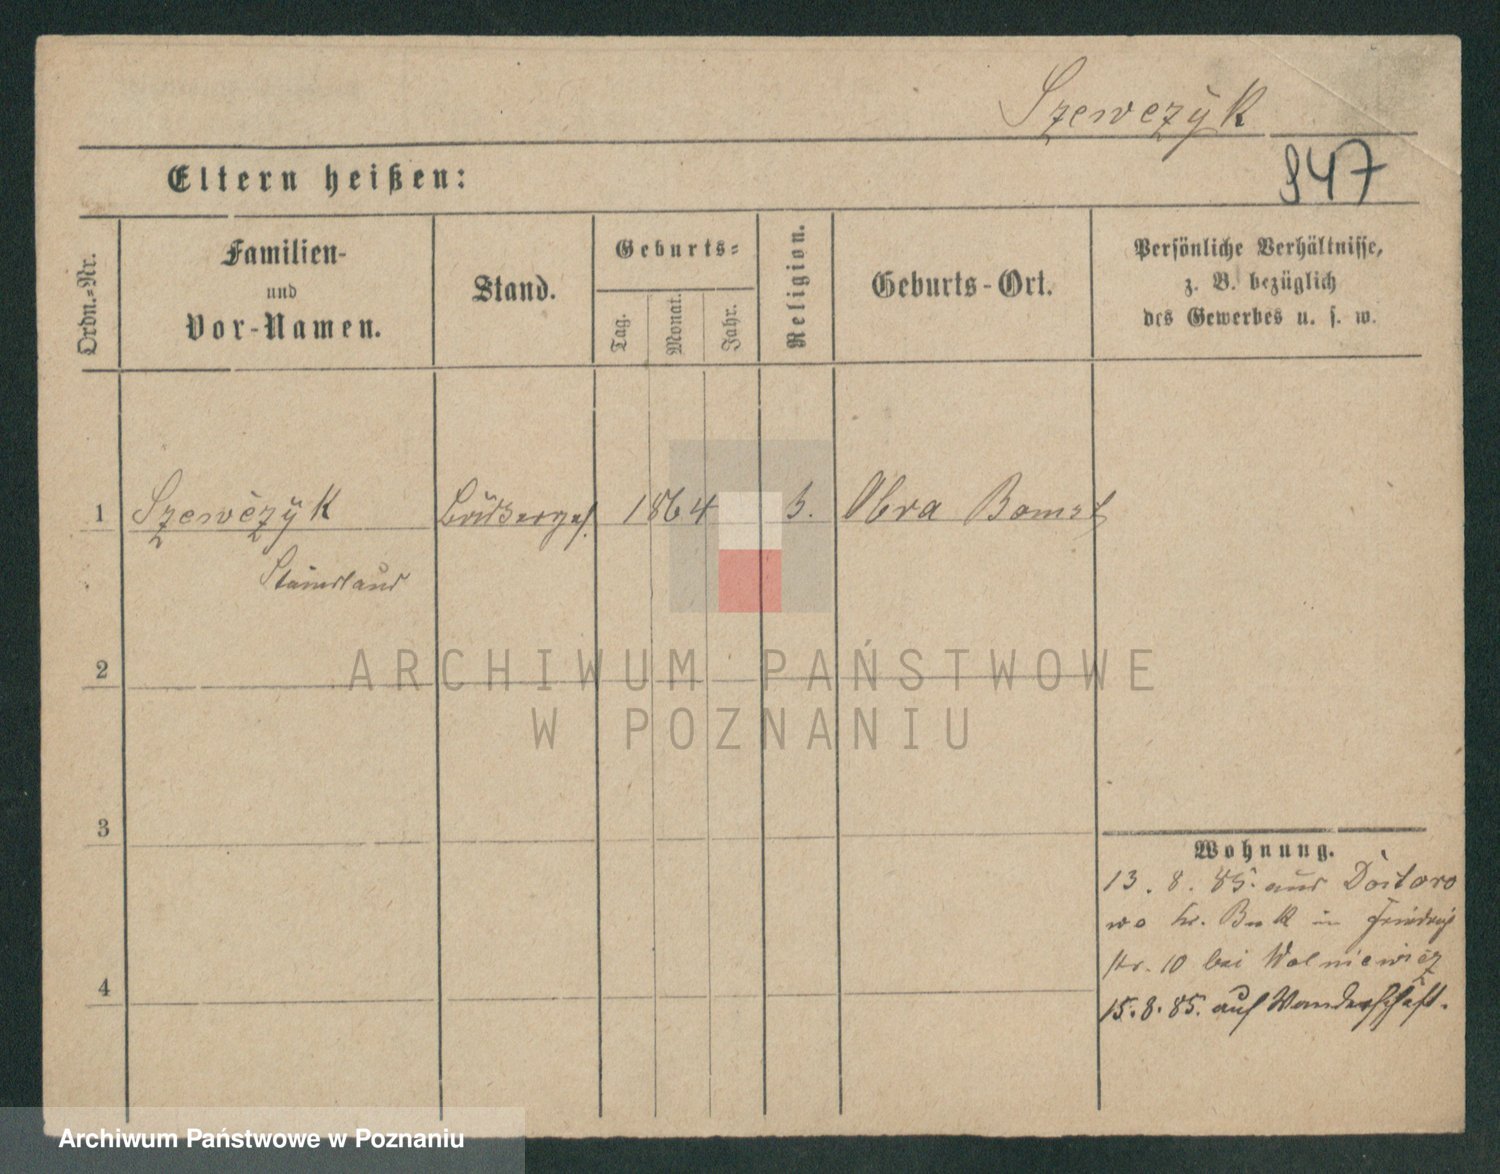 Szewczÿk
947
Eltern heißen:
Ordn.-Nr.
Familien-
und
Vor-Namen.
Stand.
Geburts-
Tag.
Monat.
Jahr.
Religion.
Geburts-Ort.
Persönliche Verhältnisse,
z. B. bezüglich
des Gewerbes u. s. w.
1 Szewczÿk 1864 Obra Bomst
2
ARCHIWUM PAŃSTWOWE
W POZNANIU
3
4
Wohnung.
13. 8. 85. aus
Buk in Friedrich
str. 10 bei Wolniewicz
15. 8. 85. auf Wanderschaft.
Archiwum Państwowe w Poznaniu